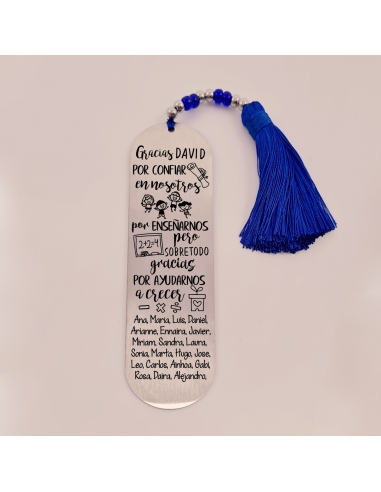 Gracias DAVID
POR CONFIAR
en nosotros
por ENSEÑARNOS
2+2=4 pero
SOBRETODO
gracias
POR AYUDARNOS
a crecer
- × ÷
Ana, María, Luis, Daniel,
Arianne, Ennaira, Javier,
Miriam, Sandra, Laura,
Sonia, Marta, Hugo, Jose,
Leo, Carlos, Ainhoa, Gabi,
Rosa, Daira, Alejandro,